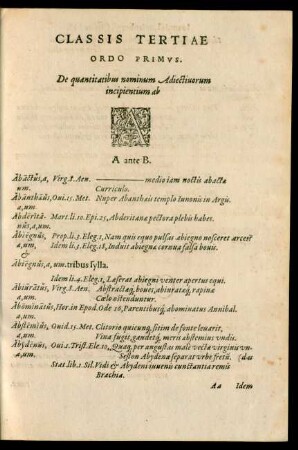 CLASSIS TERTIAE
ORDO PRIMVS.
De quantitatibus nominum Adiectiuorum
incipientium ab
A
A ante B.
Ăbāctŭs, a, Virg. 8. Aen. ———— medio iam noctis abactæ
um. Curriculo.
Ăbānthæŭs, Oui. 15. Met. Nuper Abanthæis templo Iunonis in Argis.
a, um.
Ăbdērītā- Mart. li. 10. Epi. 25, Abderitanæ pectora plebis habes.
nŭs, a, um.
Ăbiēgnŭs, Prop. li. 3. Eleg. 1, Nam quis equo pulsas abiegno nosceret arces?
a, um Idem li. 3. Eleg. 18, Induit abiegnæ cornua falsa bouis.
&
Ăbiēgnŭs, a, um. tribus syllà.
Idem li. 4. Eleg. 1, Laserat abiegni venter apertus equi.
Ăbiūrātŭs, Virg. 8. Aen. Abstractæq; boues, abiuratæq; rapinæ
a, um. Cælo ostenduntur.
Ăbōminātŭs, Hor. in Epod. Ode 16, Parentibusq; abominatus Annibal.
a, um.
Ăbstēmĭŭs, Ouid. 15. Met. Clitorio quicunq; sitim de fonte leuarit,
a, um. Vina fugit, gaudetq; meris abstemius vndis.
Ăbȳdēnŭs, Oui. 1. Trist. Ele. 10, Quaq; per angustas malè vecta virginis vn-
a, um. Seston Abydena separat vrbe fretũ. (das
Stat. lib. 1. Sil. Vidi & Abydeni iuuenis cunctantia remis
Brachia.
Aa Idem